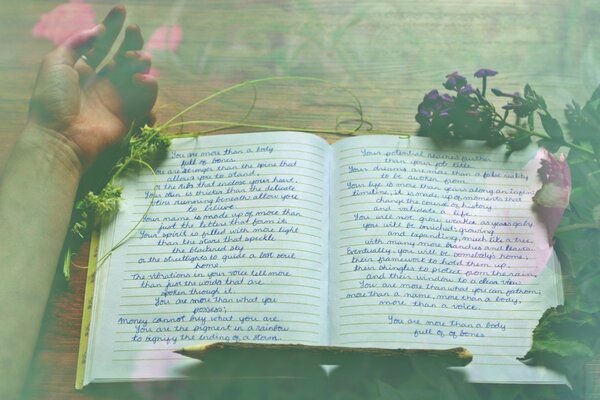 You are more than a body
full of bones.
You are stronger than the spine that
allows you to stand,
or the ribs that enclose your heart.
Your skin is thicker than the delicate
Veins running beneath allow you
to believe.
Your name is made up of more than
just the letters that form it.
Your spirit is filled with more light
than the stars that speckle
the blackest sky
or the streetlights to guide a lost soul
home.
The vibrations in your voice tell more
than just the words that are
spoken through it.
You are more than what you
possess;
Money cannot buy what you are.
You are the pigment in a rainbow
to signify the ending of a storm.
Your potential reaches further
than your veil.
Your dreams are more than a false reality
to be kill
Your life is more than years along an
timeline, it is made up of moments that
change the course of history
and validate a life.
You will not grow weaker as years go by,
you will be enriched, growing
and expanding, much like a tree,
with many more branches and leaves.
Eventually, you will be somebody's home,
their framework to hold them up,
their shingles to protect from the rains,
and their window to a clear day.
You are more than what you can fathom,
more than a name, more than a body,
more than a voice.
You are more than a body
full of of bones